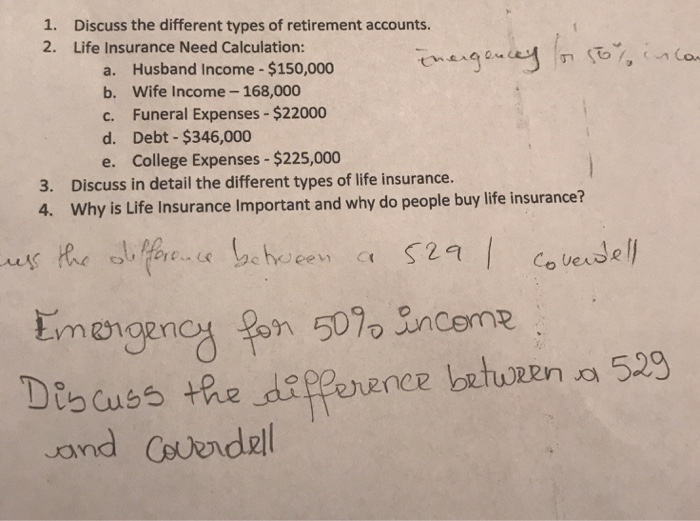 1. Discuss the different types of retirement accounts.
2. Life Insurance Need Calculation:
Emergency for 50%
a. Husband Income - $150,000
b. Wife Income – 168,000
c. Funeral Expenses - $22000
d. Debt - $346,000
e. College Expenses - $225,000
3. Discuss in detail the different types of life insurance.
4. Why is Life Insurance Important and why do people buy life insurance?
the difference between a 529 | Coverdell
Emergency for 50% income.
Discuss the difference between a 529
and Coverdell